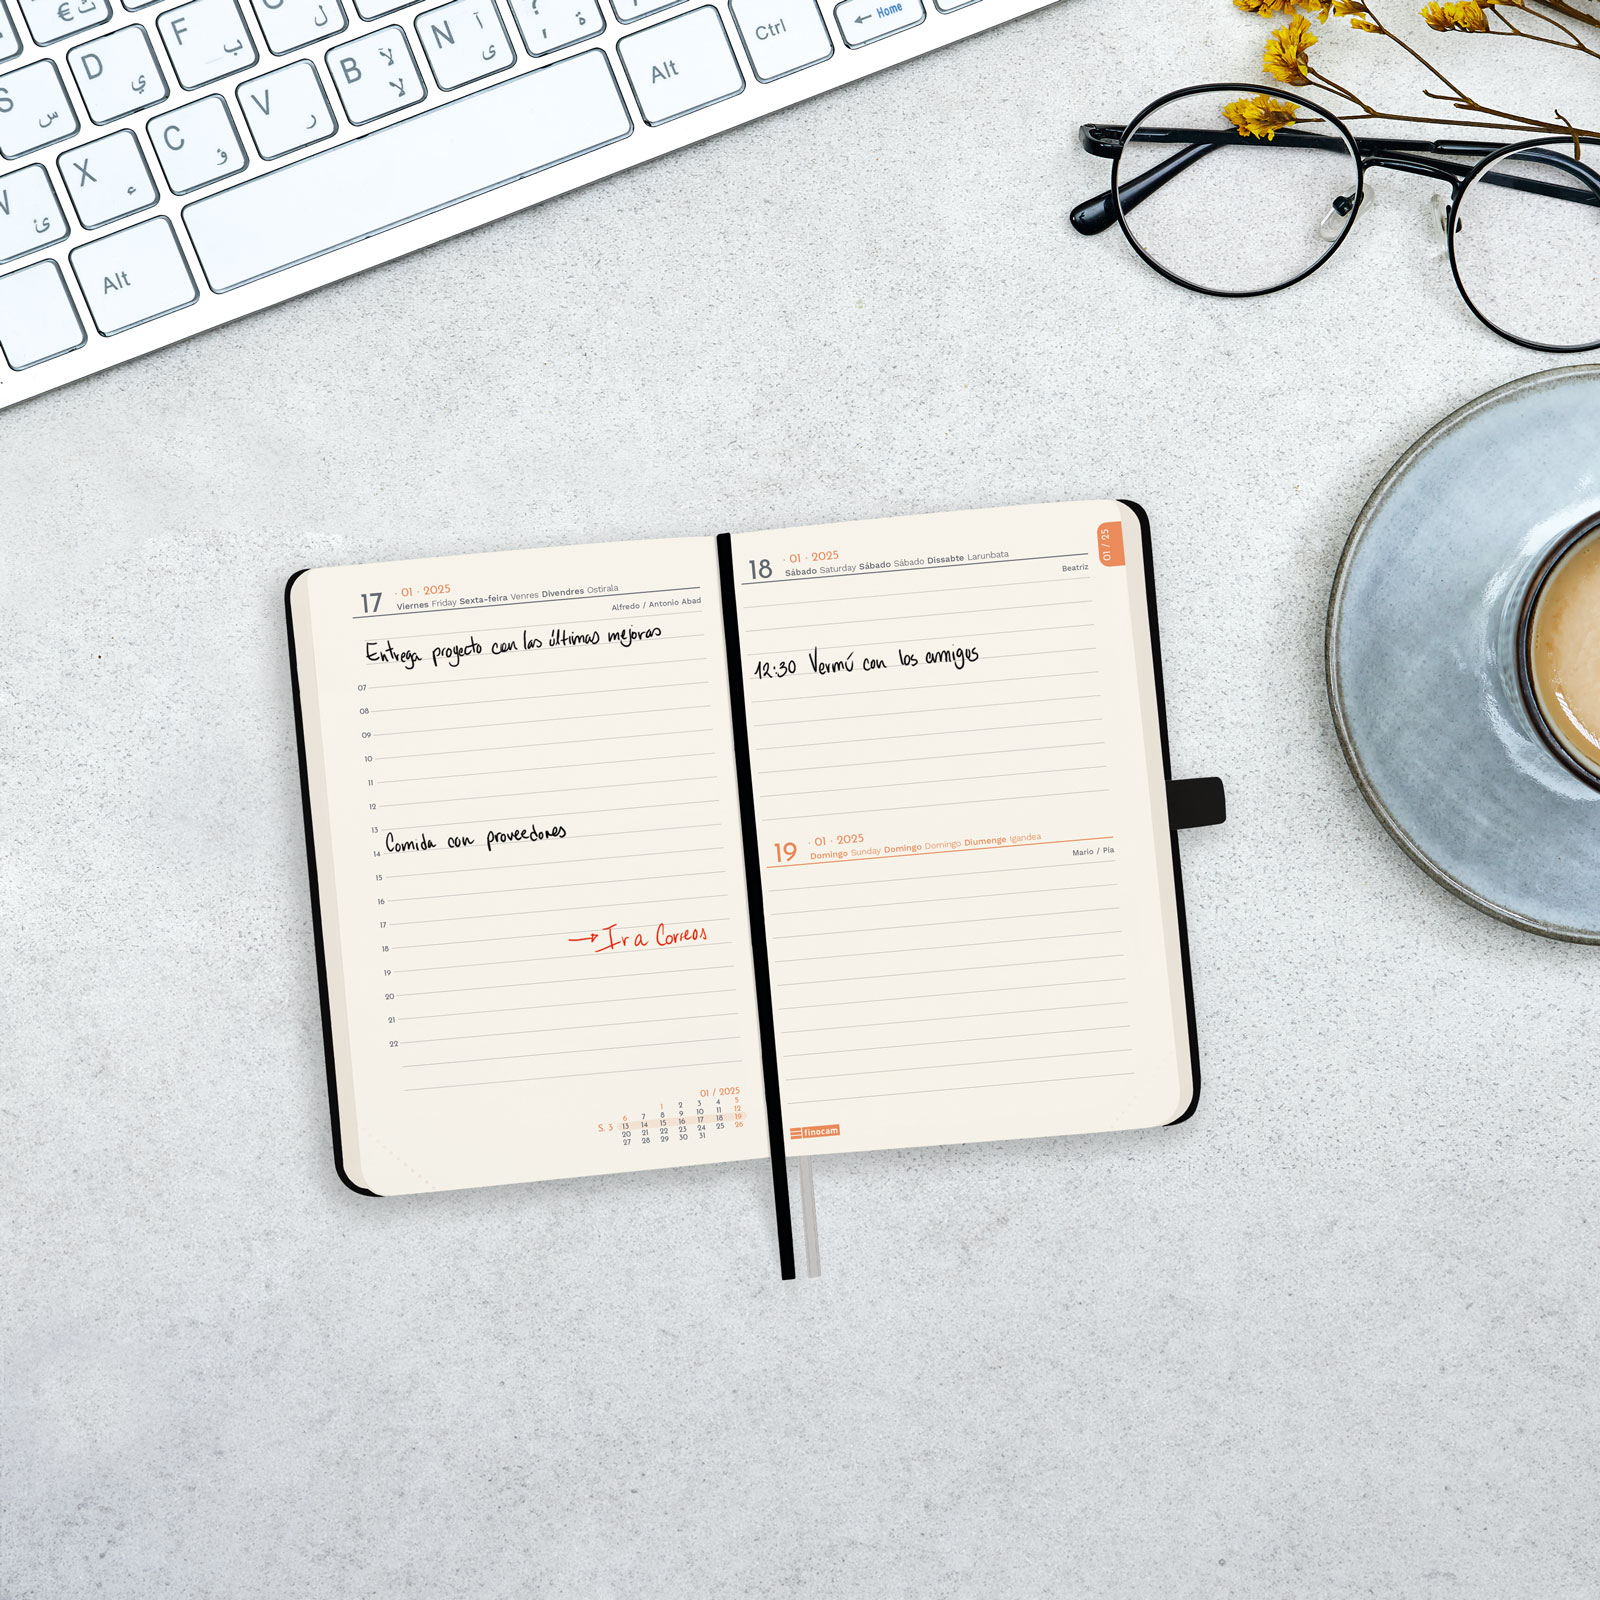 € ث
ل
؟
D ي
F ب
N آ ى
ة
← Home
S س
B لآ لا
Alt
Ctrl
V ر
C ؤ
X ء
ئ
Alt
17 · 01 · 2025
Viernes Friday Sexta-feira Venres Divendres Ostirala
Alfredo / Antonio Abad
Entrega proyecto con las últimas mejoras
07
08
09
10
11
12
13
Comida con proveedores
14
15
16
17
→ Ir a Correos
18
19
20
21
22
01 / 2025
1 2 3 4 5
6 7 8 9 10 11 12
S. 3 13 14 15 16 17 18 19
20 21 22 23 24 25 26
27 28 29 30 31
18 · 01 · 2025
Sábado Saturday Sábado Sábado Dissabte Larunbata
Beatriz
01 / 25
12:30 Vermú con los amigos
19 · 01 · 2025
Domingo Sunday Domingo Domingo Diumenge Igandea
Mario / Pía
finocam